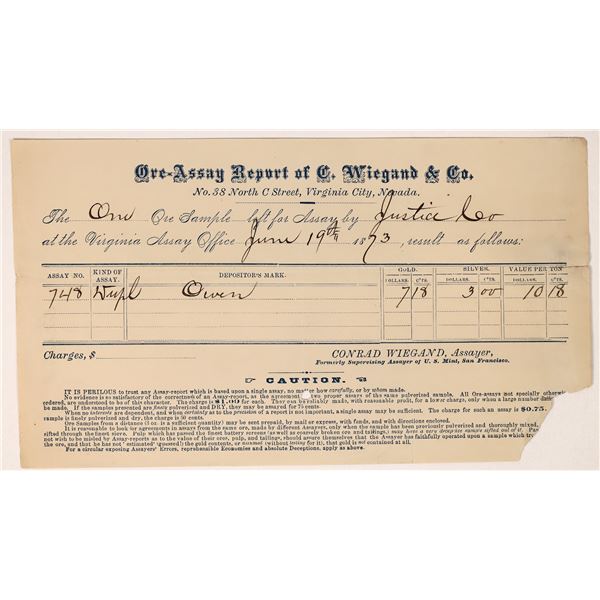 Ore-Assay Report of C. Wiegand & Co.
No. 38 North C Street, Virginia City, Nevada.
The One Ore Sample left for Assay by Justice Co
at the Virginia Assay Office June 19th 1873, result as follows:
ASSAY NO. KIND OF ASSAY. DEPOSITOR'S MARK. GOLD. SILVER. VALUE PER TON
DOLLARS. C'TS. DOLLARS. C'TS. DOLLARS. C'TS.
748 Dupl Owen 7 18 3 00 10 18
Charges, $
CONRAD WIEGAND, Assayer,
Formerly Supervising Assayer of U. S. Mint, San Francisco.
CAUTION.
IT IS PERILOUS to trust any Assay-report which is based upon a single assay, no matter how carefully, or by whom made.
No evidence is so satisfactory of the correctness of an Assay-report, as the agreement of two proper assays of the same pulverized sample. All Ore-assays not specially otherwise
ordered, are understood to be of this character. The charge is $1.00 They can be reliably made, with reasonable profit, for a lower charge, only when a large number
be made. If the samples presented are finely pulverized and DRY, they may be assayed for 75 cents.
When no interests are dependent, and when certainly as to the precision of a report is not important, a single assay may be sufficient. The charge for such an assay is $0.75.
sample is finely pulverized and dry, the charge is 50 cents.
Ore Samples from a distance (3 oz. is a sufficient quantity) may be sent prepaid, by mail or express, with funds, and with directions enclosed.
It is reasonable to look for agreements in assays from the same ore, made by different Assayers, only when the sample has been previously pulverized and thoroughly mixed,
sifted through the finest sieve. Pulp which has passed the finest battery screens (as well as coarsely broken ore and tailings,) may have a very deceptive sample sifted out of it.
not wish to be misled by Assay-reports as to the value of their ores, pulp, and tailings, should assure themselves that the Assayer has faithfully operated upon a sample which
the ore, and that he has not "estimated" (guessed) the gold contents, or assumed (without testing for it), that gold is not contained at all.
For a circular exposing Assayers' Errors, reprehensible Economies and absolute Deceptions, apply as above.